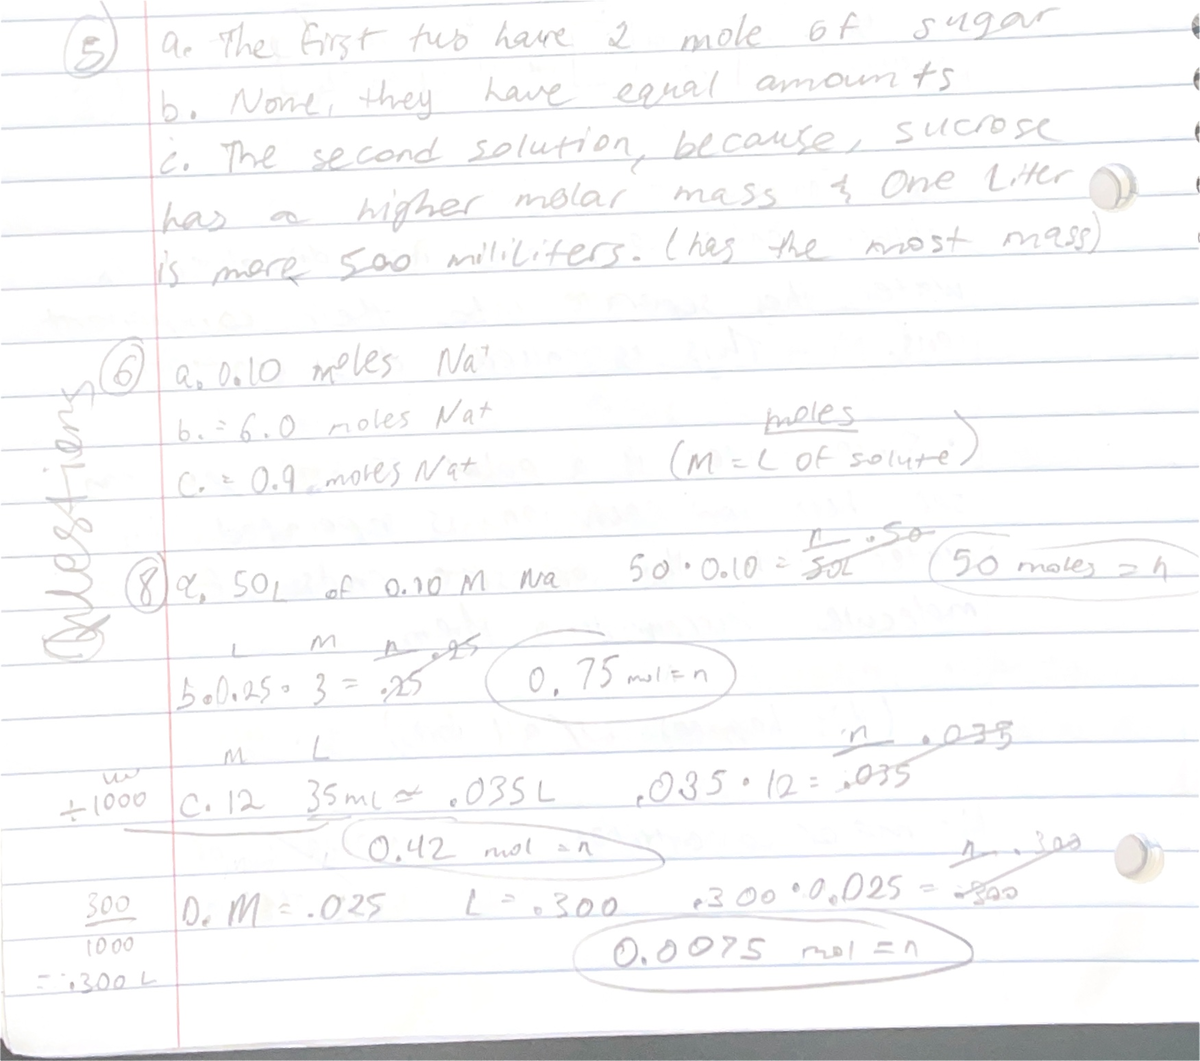 Questions
5 a. The first two have 2 mole of sugar
b. None, they have equal amounts
c. The second solution, because, sucrose
has a higher molar mass & One Liter
is more 500 mililiters. (has the most mass)
6 a. 0.10 moles Na+
b. = 6.0 moles Na+
c. = 0.9 moles Na+
moles
(M = L of solute)
8 a. 50L of 0.10 M Na 50 · 0.10 = n/50L · 50 50 moles = n
L M
b. 0.25 · 3 = n/.25 · .25 0.75 mol = n
M L
÷1000 C. 12 35mL = .035L .035 · 12 = n/.035 · .035
0.42 mol = n
300/1000 D. M = .025 L = .300 .300 · 0.025 = n/.300 · .300
= .300 L 0.0075 mol = n